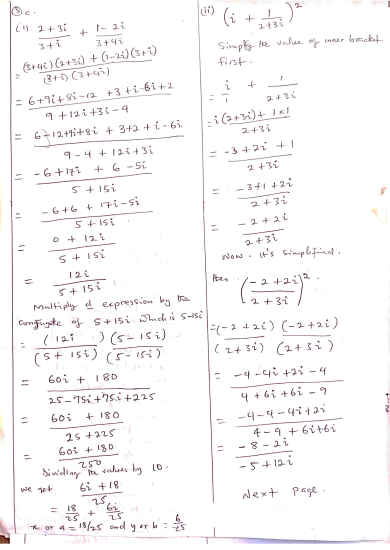 ③ c.
(i) (2+3i)/(3+i) + (1-2i)/(3+4i)
= ((3+4i)(2+3i) + (1-2i)(3+i))/((3+i)(3+4i))
= (6+9i+8i-12 +3+i-6i+2)/(9+12i+3i-4)
= (6-12+9i+8i + 3+2+i-6i)/(9-4+12i+3i)
= (-6+17i + 6-5i)/(5+15i)
= (-6+6 + 17i-5i)/(5+15i)
= (0+12i)/(5+15i)
= 12i/(5+15i)
Multiply d expression by the
conjugate of 5+15i which is 5-15i
= (12i)(5-15i)/((5+15i)(5-15i))
= (60i + 180)/(25-75i+75i+225)
= (60i + 180)/(25+225)
= (60i + 180)/250
Dividing the values by 10.
we get (6i+18)/25
= 18/25 + 6i/25
x or a = 18/25 and y or b = 6/25
(ii) (i + 1/(2+3i))²
Simplify the value of inner bracket
first.
= i/1 + 1/(2+3i)
= (i(2+3i) + 1x1)/(2+3i)
= (-3+2i+1)/(2+3i)
= (-3+1+2i)/(2+3i)
= (-2+2i)/(2+3i)
Now. it's simplified.
then ((-2+2i)/(2+3i))².
= (-2+2i)(-2+2i)/((2+3i)(2+3i))
= (-4-4i+2i-4)/(4+6i+6i-9)
= (-4-4-4i+2i)/(4-9+6i+6i)
= (-8-2i)/(-5+12i)
Next page.